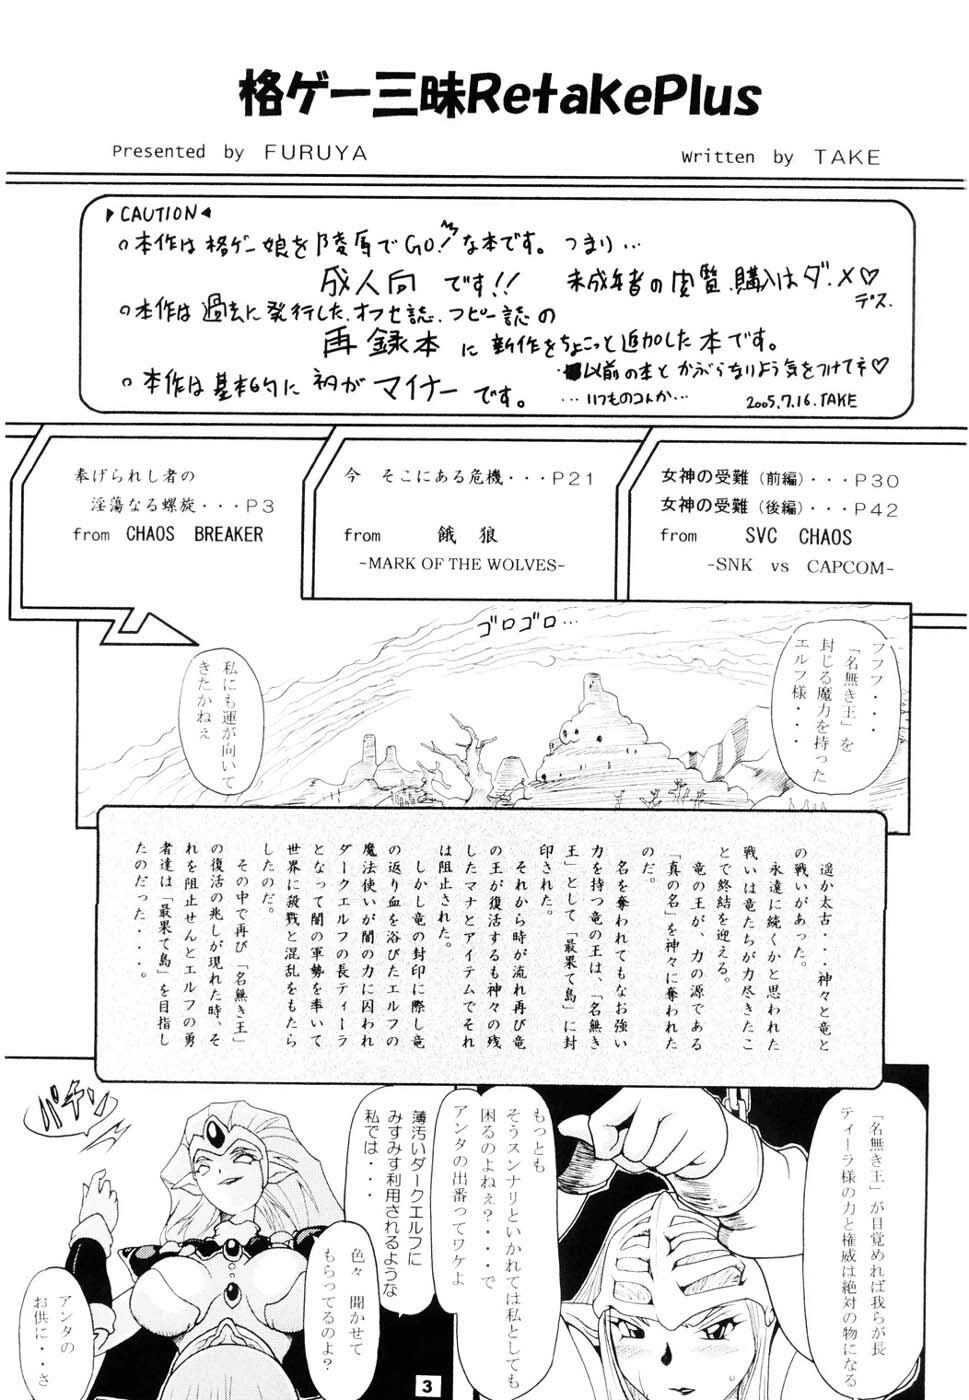 格ゲー三昧RetakePlus
Presented by FURUYA
Written by TAKE
▶CAUTION◀
○本作は格ゲー娘を陵辱でGO!な本です。つまり…
成人向です!! 未成年者の閲覧、購入はダ.メ♡
デス.
○本作は過去に発行した、オフセ誌、コピー誌の
再録本に新作をちょこっと追加した本です。
・以前の本とかぶらなりよう気をつけてネ♡
○本作は基本的にネタがマイナーです。
…いつものコトか… 2005.7.16.TAKE
奉げられし者の
淫蕩なる螺旋・・・P3
from CHAOS BREAKER
今 そこにある危機・・・P21
from 餓狼
-MARK OF THE WOLVES-
女神の受難(前編)・・・P30
女神の受難(後編)・・・P42
from SVC CHAOS
-SNK vs CAPCOM-
ゴロゴロ…
フフフ・・・
「名無き王」を
封じる魔力を持った
エルフ様・・・
私にも運が向いて
きたかねぇ
遥か太古・・・神々と竜と
の戦いがあった。
永遠に続くかと思われた
戦いは竜たちが力尽きたこ
とで終結を迎える。
竜の王が、力の源である
「真の名」を神々に奪われた
のだ。
名を奪われてもなお強い
力を持つ竜の王は、「名無き
王」として「最果て島」に封
印された。
それから時が流れ再び竜
の王が復活するも神々の残
したマナとアイテムでそれ
は阻止された。
しかし竜の封印に際し竜
の返り血を浴びたエルフの
魔法使いが闇の力に囚われ
ダークエルフの長ティーラ
となって闇の軍勢を率いて
世界に殺戮と混乱をもたら
したのだ。
その中で再び「名無き王」
の復活の兆しが現れた時、そ
れを阻止せんとエルフの勇
者達は「最果て島」を目指し
たのだった・・・・。
「名無き王」が目覚めれば我らが長
ティーラ様の力と権威は絶対の物になる
もっとも
そうスンナリといかれては私としても
困るのよねぇ?・・・で
アンタの出番ってワケよ
薄汚いダークエルフに
みすみす利用されるような
私では・・・
色々 聞かせて
もらってるのよ?
パチン
アンタの
お供に・・さ
3